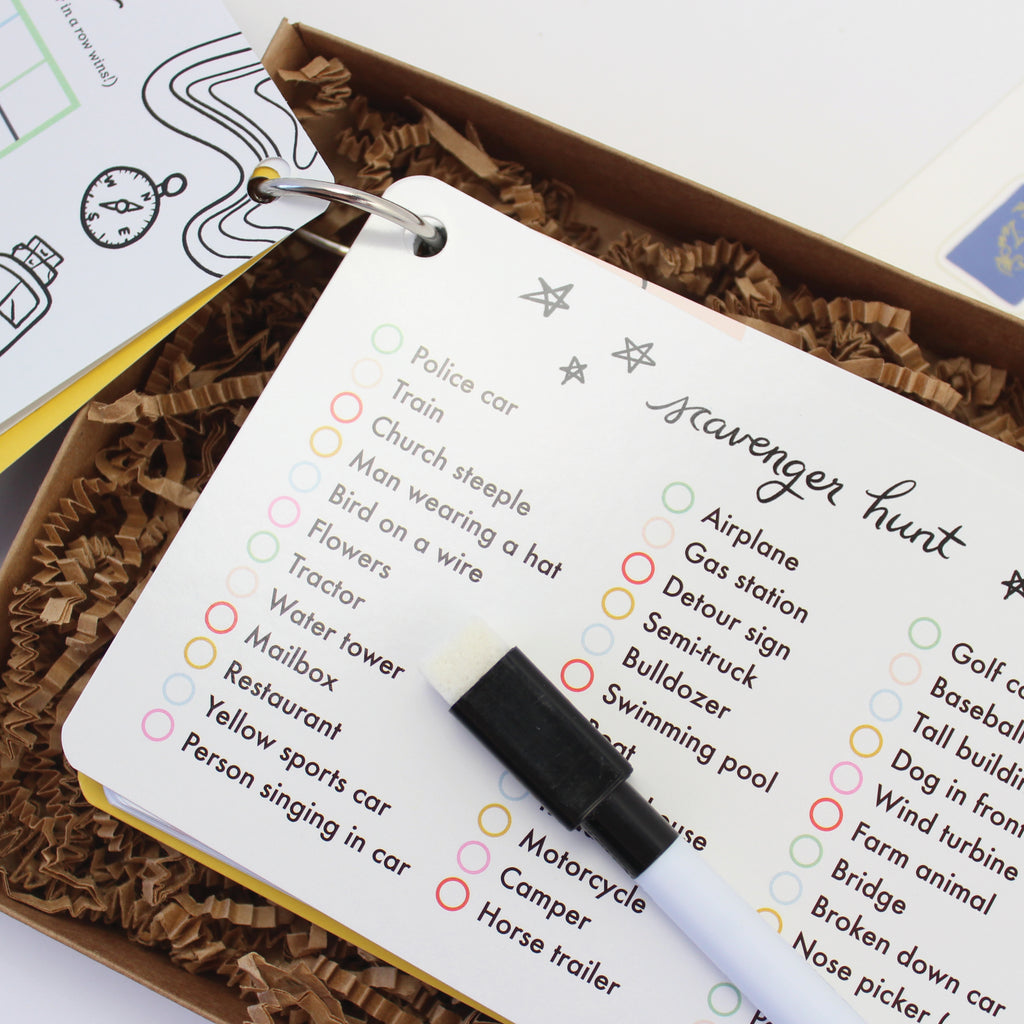 in a row wins!)
N
E
S
W
scavenger hunt
Police car
Train
Church steeple
Man wearing a hat
Bird on a wire
Flowers
Tractor
Water tower
Mailbox
Restaurant
Yellow sports car
Person singing in car
Airplane
Gas station
Detour sign
Semi-truck
Bulldozer
Swimming pool
Motorcycle
Camper
Horse trailer
Golf
Baseball
Tall
Dog in front
Wind turbine
Farm animal
Bridge
Broken down car
Nose picker (